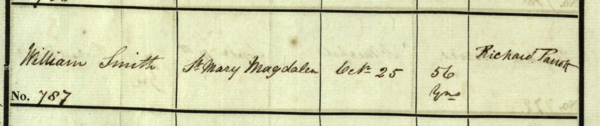 William Smith St Mary Magdalen Octr 25 56 Yrs Richard Parrott
No. 787